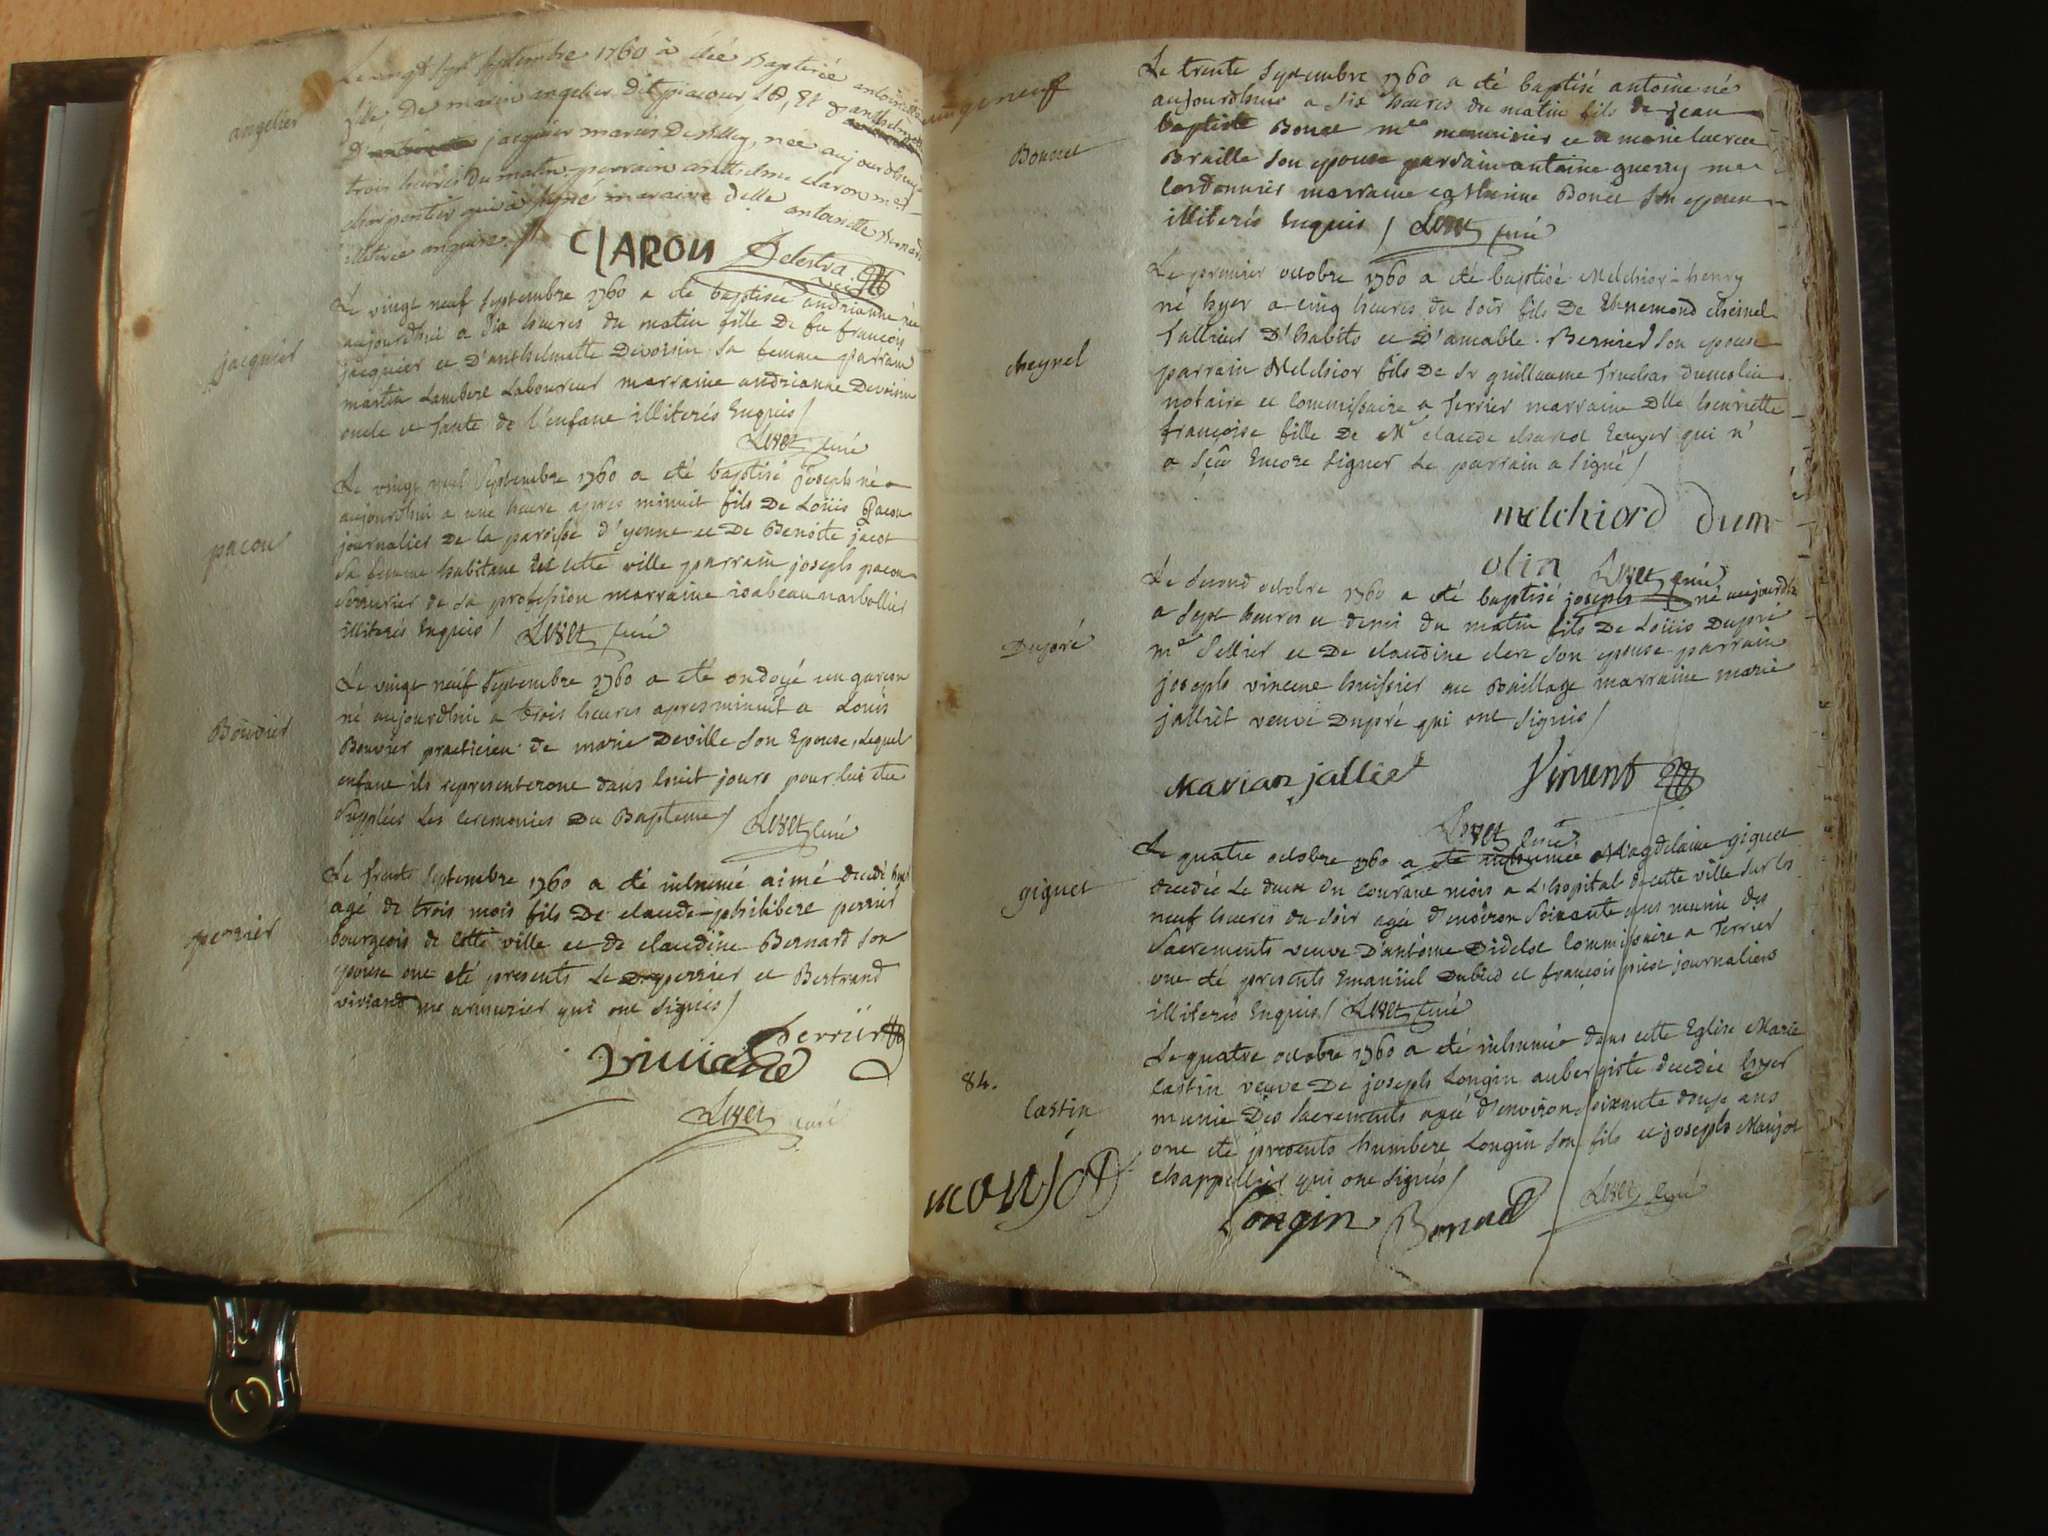 angelier
Le vingt sept Septembre 1760 à été Baptisée antoinette
fille De marin angelier Dit jacour et d'anthelmette
jacquier mariés De Billey, née aujourdhuy a
trois heures du matin, parrain anthelme claron me
charpentier qui a signé maraine delle antoinette
illitérée enquise /
CLARON Delestra
jacquier
Le vingt neuf Septembre 1760 a été baptisée andrianne née
aujourdhui a dix heures du matin fille De fu françois
jacquier et D'anthelmette Devoisin sa femme parrain
martin Lambert Laboureur marraine andrianne Devoisin
oncle et tante de l'enfant illiterés Enquis /
Livet curé
pacou
Le vingt neuf Septembre 1760 a été baptisé joseph né
aujourdhui a une heure apres minuit fils De Loüis Pacou
journalier De la paroisse d'yenne et De Benoite jacot
sa femme habitant en cette ville parrain joseph pacou
serrurier de sa profession marraine isabeau narbollier
illiterés Enquis / Livet curé
Bouvier
Le vingt neuf Septembre 1760 a été ondoyé un garçon
né aujourdhui a trois heures apres minuit a Louis
Bouvier practicien de marie Deville son Epouse, Lequel
enfant ils representeront dans huit jours pour lui etre
Supplées Les Ceremonies Du Bapteme / Livet curé
perrier
Le trente Septembre 1760 a été inhumé aimé decedé hyer
agé de trois mois fils De claude-philibert perrier
bourgeois de cette ville et de claudine Bernard son
epouse ont été presents Le Sr perrier et Bertrand
viviand me armurier qui ont signés /
Perrier
Viviand
Livet curé
Bonnet
Le trente Septembre 1760 a été baptisé antoine né
aujourdhui a dix heures du matin fils de jean
baptiste Bonet me menuisier et de marie lucrece
Braille son epouse parrain antoine guerry me
Cordonnier marraine catherine Bonet son epouse
illiterés Enquis / Livet curé
cheynel
Le premier octobre 1760 a été baptisé Melchior-henry
né hyer a cinq heures du soir fils De Ennemond cheinel
Tallieur D'habits et D'amable Bernier son epouse
parrain Melchior fils De Sr guillaume Truchar dumolin
notaire et commissaire a Terrier marraine Dlle henriette
françoise fille De Me claude charcot Ecuyer qui n'
a sçeu Encore signer Le parrain a signé /
melchiord dum
olin Livet curé
Dupré
Le second octobre 1760 a été baptisé joseph né aujourdhui
a sept heures et demi du matin fils De Loüis Dupré
me Sellier et De claudine clerc son epouse parrain
joseph vincent huissier au Baillage marraine marie
jalliet veuve Dupré qui ont signés /
Marian jalliet Vincent
Livet curé
giguet
Le quatre octobre 1760 a été inhumée Magdelaine giguet
decedée Le deux du courant mois a L'hopital de cette ville sur les
neuf heures du soir agée d'environ soixante ans munie des
Sacrements veuve D'antoine Didelot Commissaire a Terrier
ont été presents Emanüel Dubied et françois piot journaliers
illiterés Enquis / Livet curé
84.
Castin
Le quatre octobre 1760 a été inhumée dans cette Eglise Marie
Castin veuve De joseph Longin aubergiste decedée hyer
munie Des Sacrements agée d'environ soixante douze ans
ont été presents humbert Longin son fils et joseph Manjot
chappellier qui ont signés /
manjot Longin Bernard Livet curé